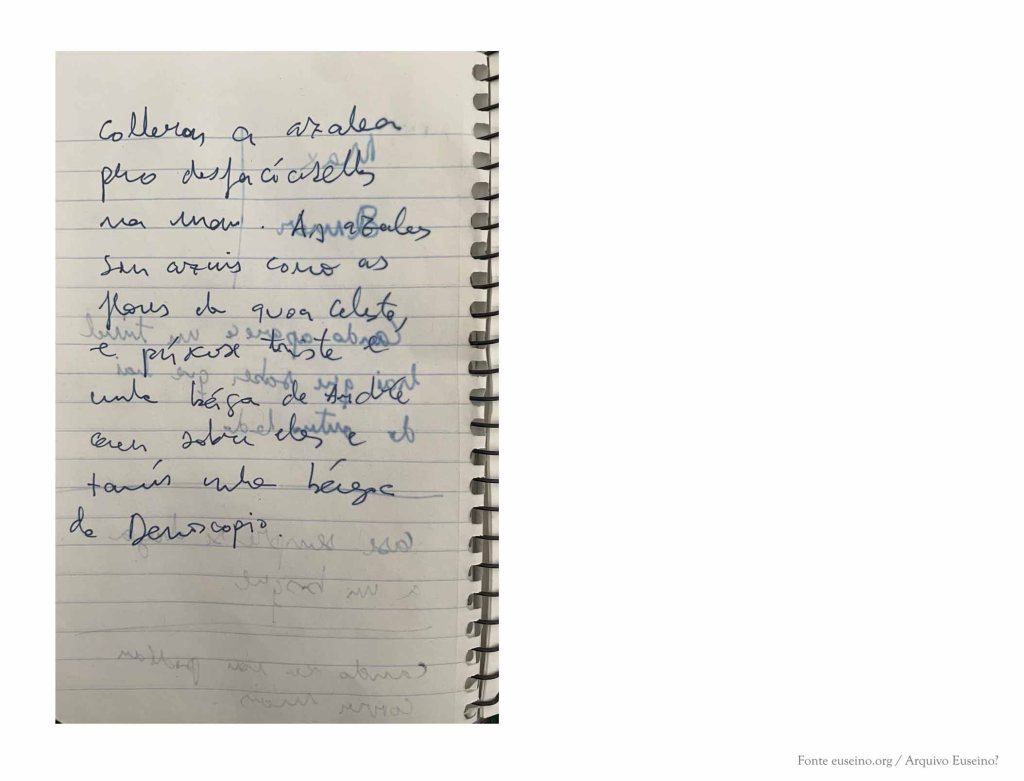 Colleron a azalea
pero desfacíaselles
na man. As azaleas
son azuis como as
flores da quoa celeste,
e púxose triste e
unha bágoa de André
caeu sobre elas e
tamén unha bágoa
de Demoscopio.
Fonte euseino.org / Arquivo Euseino?